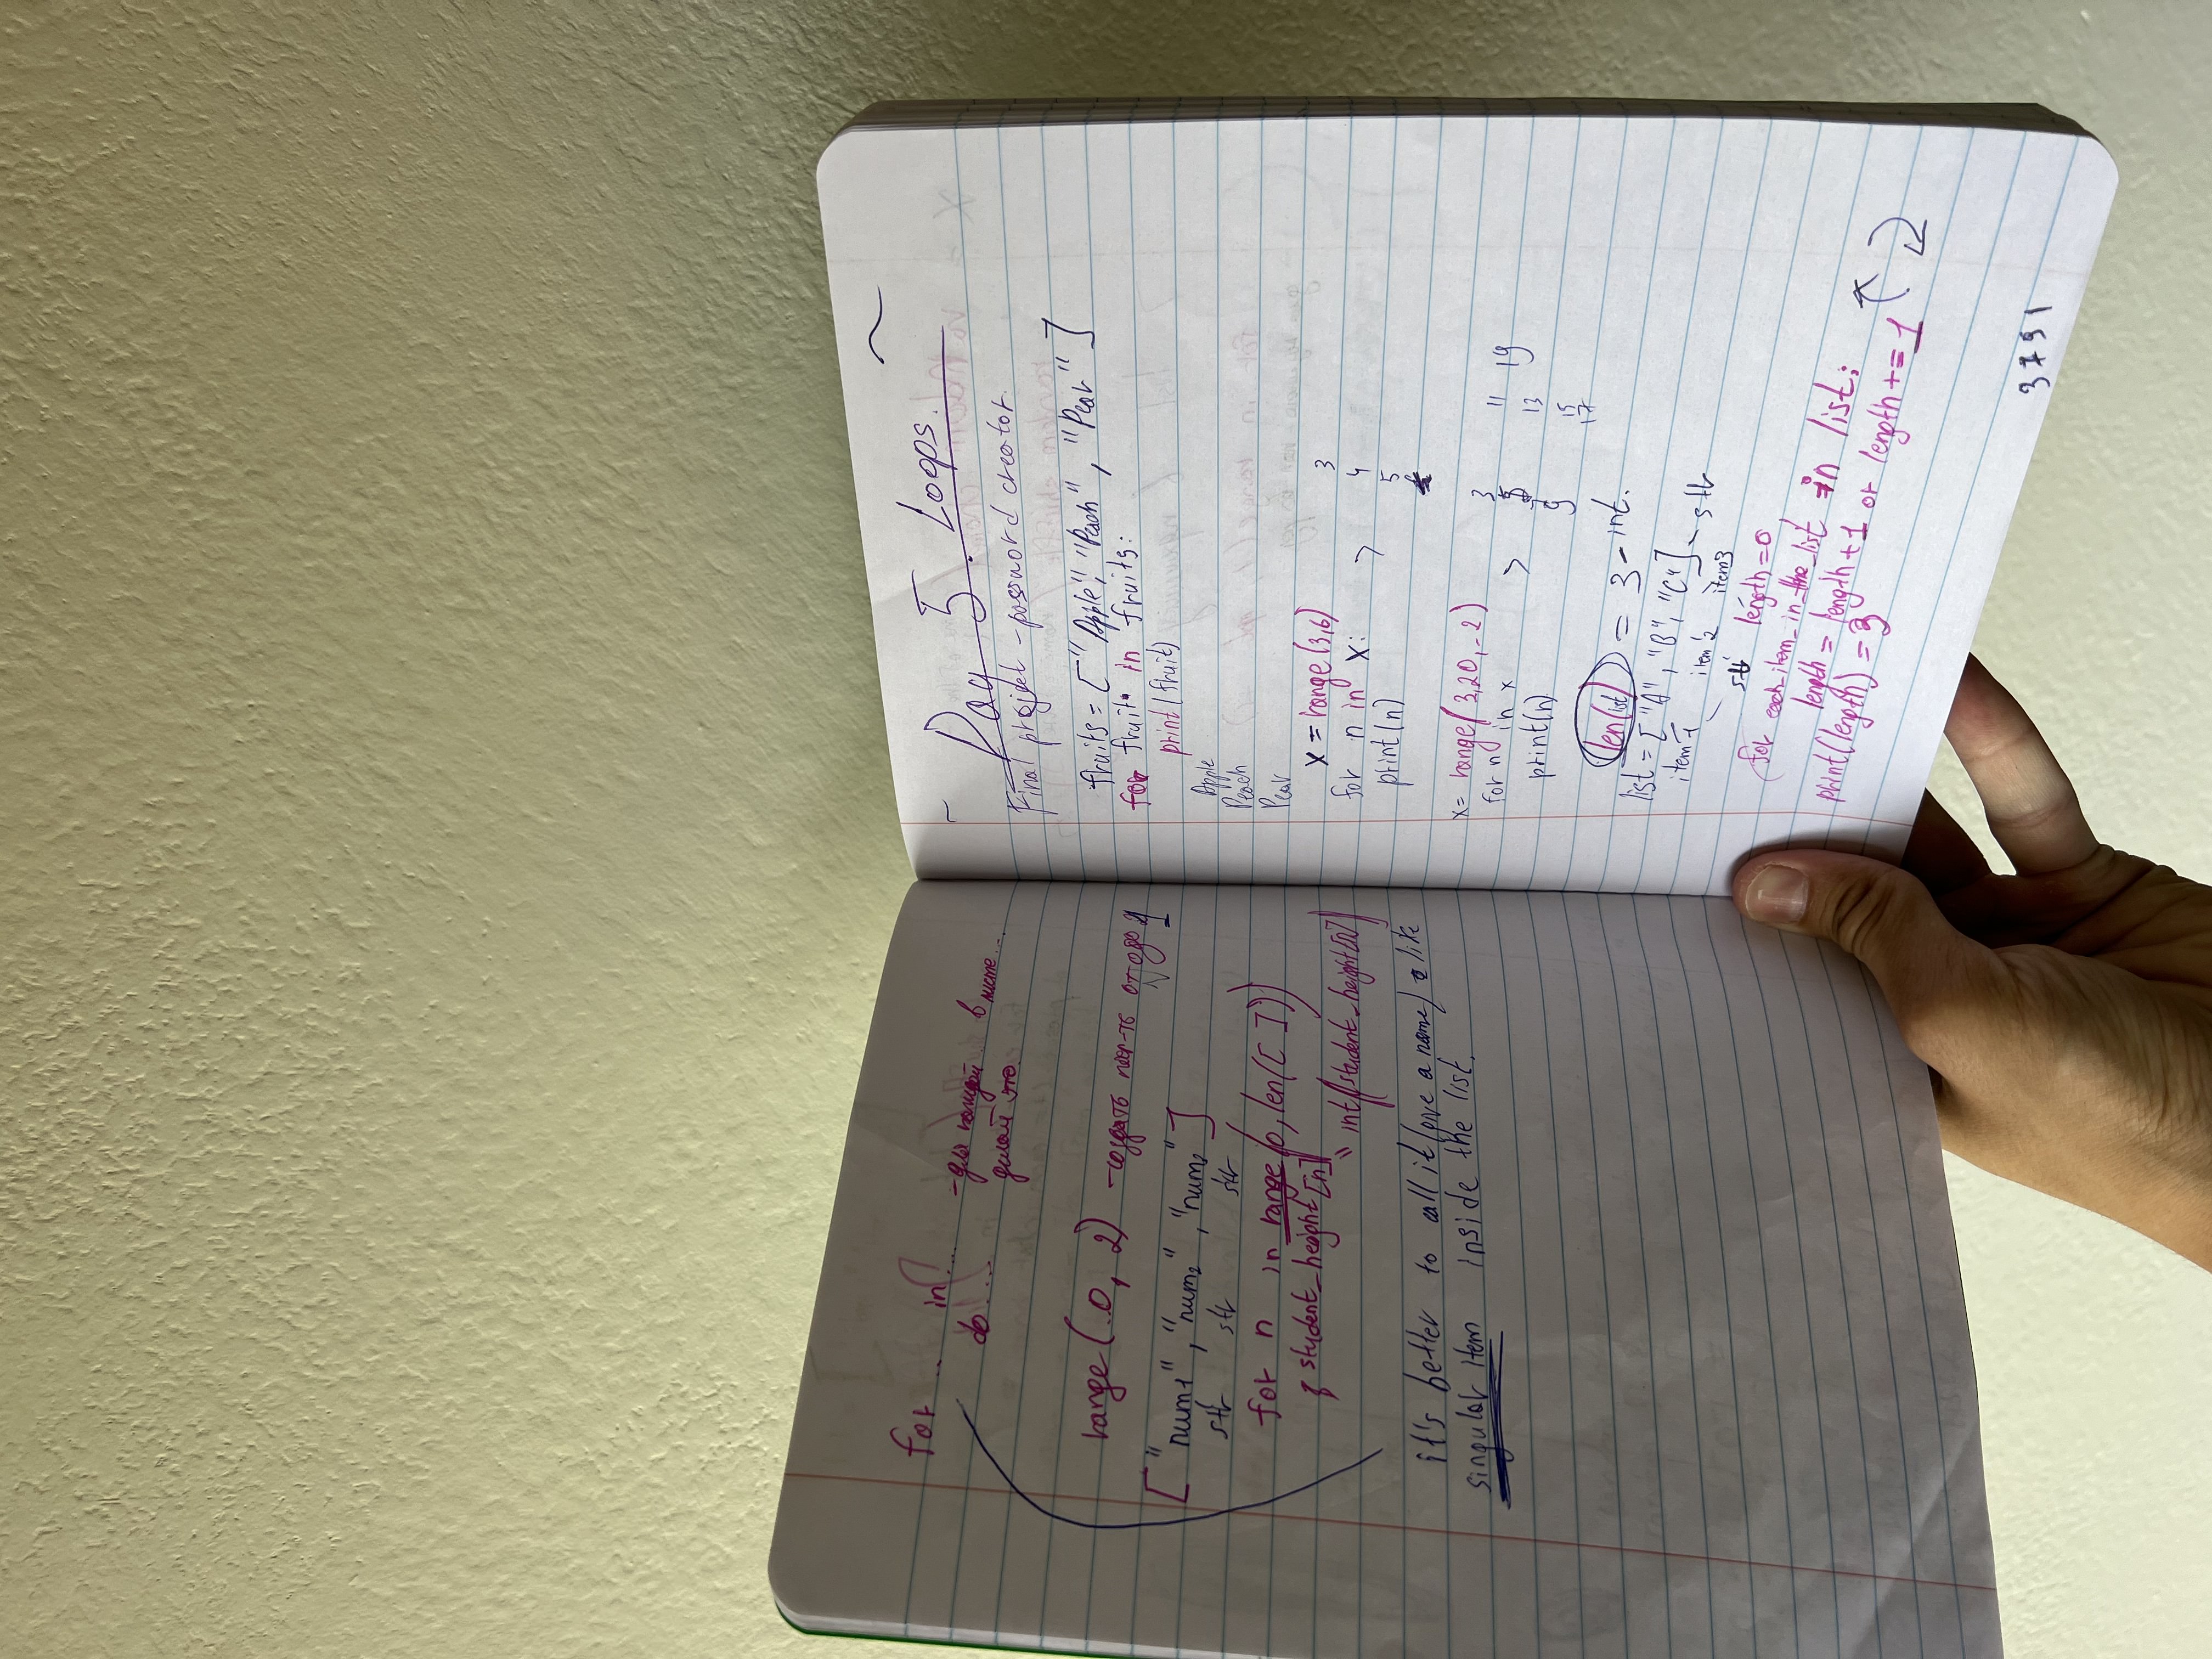 for ... in ... - для каждой .. в листе...
do .... делай это
range (.0, 2) - создать посл-ть от 0 до 1
["num1", "num2", "num3"]
str str str
for n in range (0, len([ ]))
student_height[n]
int(student_height[n])
it's better to call it (give a name) like
singular item inside the list.
Day 5. Loops.
Final projet - password creator.
fruits = ["Apple", "Peach", "Pear"]
for fruit in fruits:
print(fruit)
Apple
Peach
Pear
x = range (3,6) 3
for n in x: > 4
print(n) 5
x = range(3,20,-2) 3 11 19
for n in x > 5 13
print(n) 7 15
9 17
len(list) = 3 - int.
list = ["A", "B", "C"] - str
item1 item2 item3
str length=0
for each_item_in_the_list in list:
length = length+1 or length += 1
print(length) = 3
3791